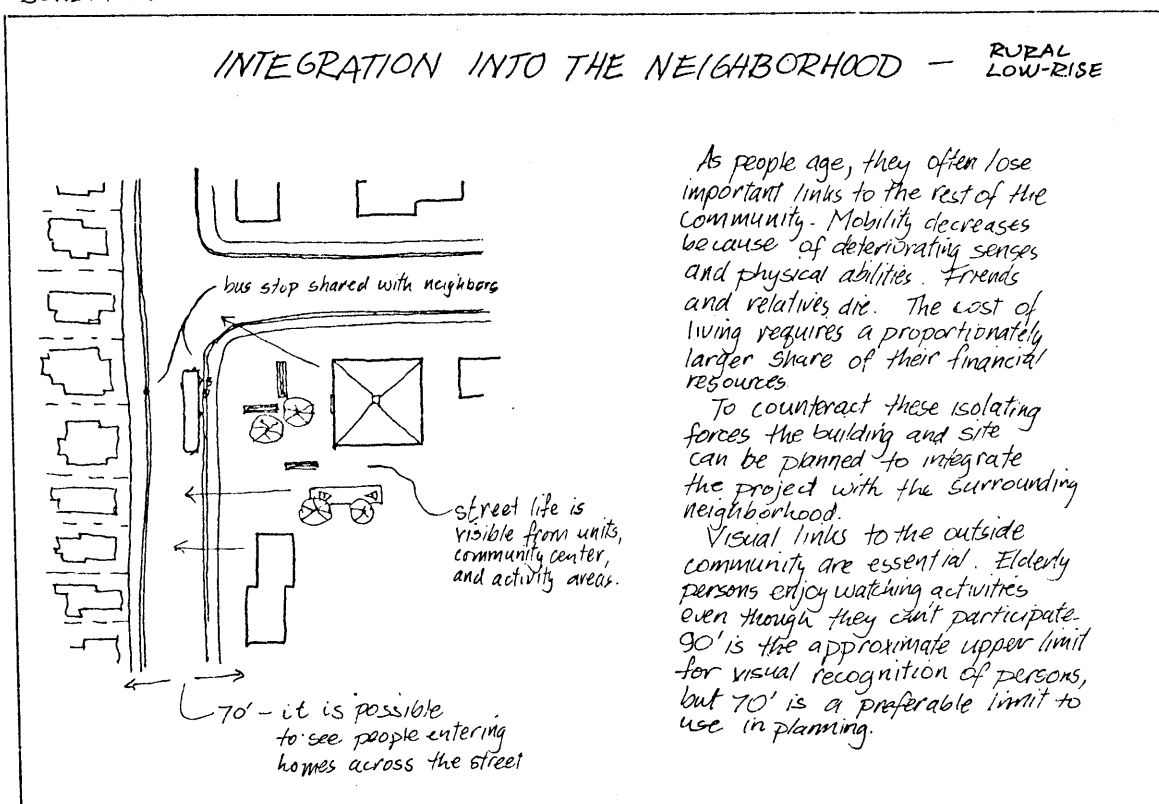 INTEGRATION INTO THE NEIGHBORHOOD — RURAL
LOW-RISE
bus stop shared with neighbors
street life is
visible from units,
community center,
and activity areas.
70' - it is possible
to see people entering
homes across the street
As people age, they often lose
important links to the rest of the
community. Mobility decreases
because of deteriorating senses
and physical abilities. Friends
and relatives die. The cost of
living requires a proportionately
larger share of their financial
resources.
To counteract these isolating
forces the building and site
can be planned to integrate
the project with the surrounding
neighborhood.
Visual links to the outside
community are essential. Elderly
persons enjoy watching activities
even though they can't participate.
90' is the approximate upper limit
for visual recognition of persons,
but 70' is a preferable limit to
use in planning.